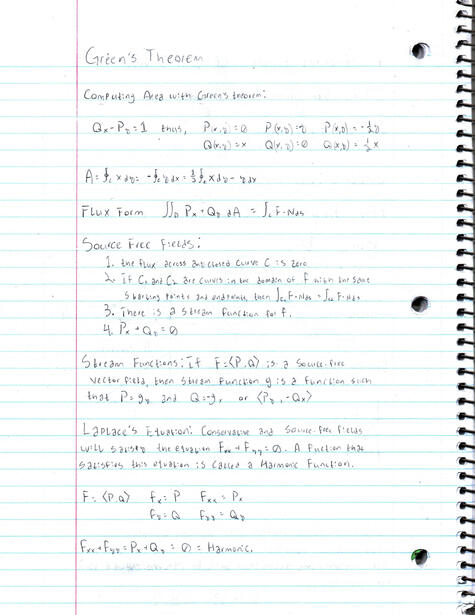 Green's Theorem
Computing Area with Green's theorem:
Qx - Py = 1 thus, P(x,y) = 0 P(x,y) = y P(x,y) = -½y
Q(x,y) = x Q(x,y) = 0 Q(x,y) = ½x
A = ∮c x dy = -∮c y dx = ½∮c x dy - y dx
Flux Form ∬D Px + Qy dA = ∫c F·N ds
Source Free Fields:
1. the flux across any closed curve C is zero
2. If C1 and C2 are curves in the domain of F with the same
starting points and endpoints, then ∫c1 F·N ds = ∫c2 F·N ds
3. There is a stream function for F.
4. Px + Qy = 0
Stream Functions: If F = ⟨P,Q⟩ is a source-free
vector field, then stream function g is a function such
that P = gy and Q = -g, or ⟨Py, -Qx⟩
Laplace's Equation: Conservative and Source-free fields
will satisfy the equation Fxx + Fyy = 0. A fuction that
satisfies this equation is called a Harmonic Function.
F = ⟨P,Q⟩ fx = P Fxx = Px
Fy = Q Fyy = Qy
Fxx + Fyy = Px + Qy = 0 = Harmonic.